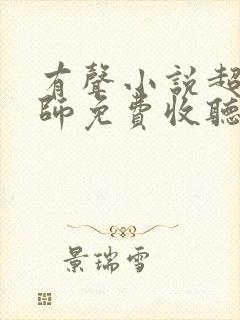 有聲小說超
師免費收聽
景瑞雪